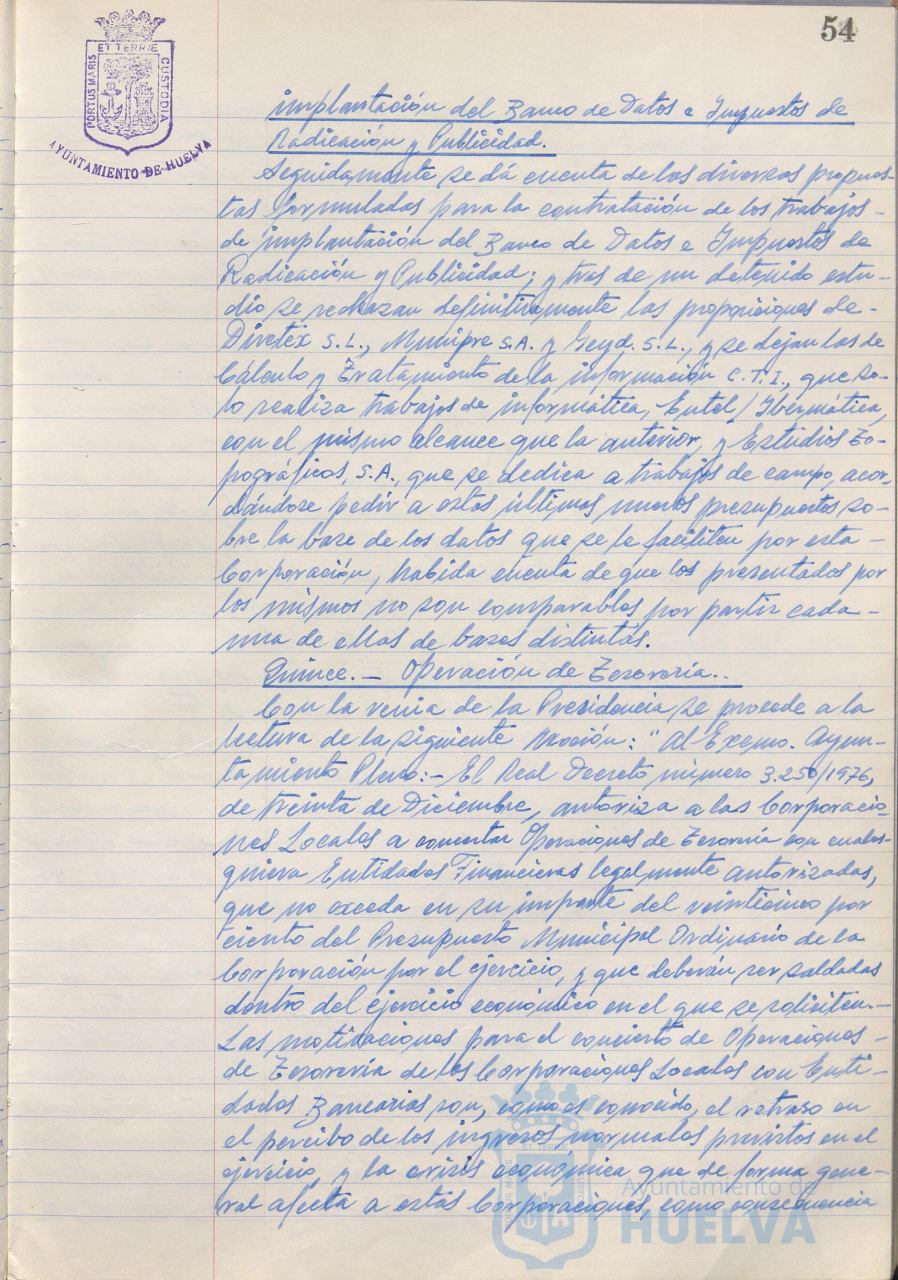 54
PORTUS MARIS ET TERRÆ CUSTODIA
AYUNTAMIENTO DE HUELVA
implantación del Banco de Datos e Impuestos de
Radicación y Publicidad.
Seguidamente se dá cuenta de las diversas propues-
tas formuladas para la contratación de los trabajos-
de implantación del Banco de Datos e Impuestos de
Radicación y Publicidad; y tras de un detenido estu-
dio se rechazan definitivamente las proposiciones de-
Divetex S.L., Munipre S.A. y Geyd. S.L., y se dejan las de
Cálculo y Tratamiento de la información C.T.I., que so-
lo realiza trabajos de informática, Entel/Ibermática,
con el mismo alcance que la anterior, y Estudios To-
pográficos, S.A., que se dedica a trabajos de campo, acor-
dándose pedir a estos últimos nuevos presupuestos so-
bre la base de los datos que se le faciliten por esta-
Corporación, habida cuenta de que los presentados por
los mismos no son comparables por partir cada-
una de ellas de bases distintas.
Quince.- Operación de Tesorería..
Con la venia de la Presidencia se procede a la
lectura de la siguiente Moción: "Al Excmo. Ayun-
tamiento Pleno:- El Real Decreto número 3.250/1976,
de treinta de Diciembre, autoriza a las Corporacio-
nes Locales a concertar Operaciones de Tesorería con cuales-
quiera Entidades Financieras legalmente autorizadas,
que no exceda en su importe del veinticinco por
ciento del Presupuesto Municipal Ordinario de la
Corporación por el ejercicio, y que deberán ser saldadas
dentro del ejercicio económico en el que se soliciten.-
Las motivaciones para el concierto de Operaciones-
de Tesorería de las Corporaciones Locales con Enti-
dades Bancarias son, como es conocido, el retraso en
el percibo de los ingresos normales previstos en el
ejercicio, y la crisis económica que de forma gene-
ral afecta a estas Corporaciones, como consecuencia
Ayuntamiento de
HUELVA